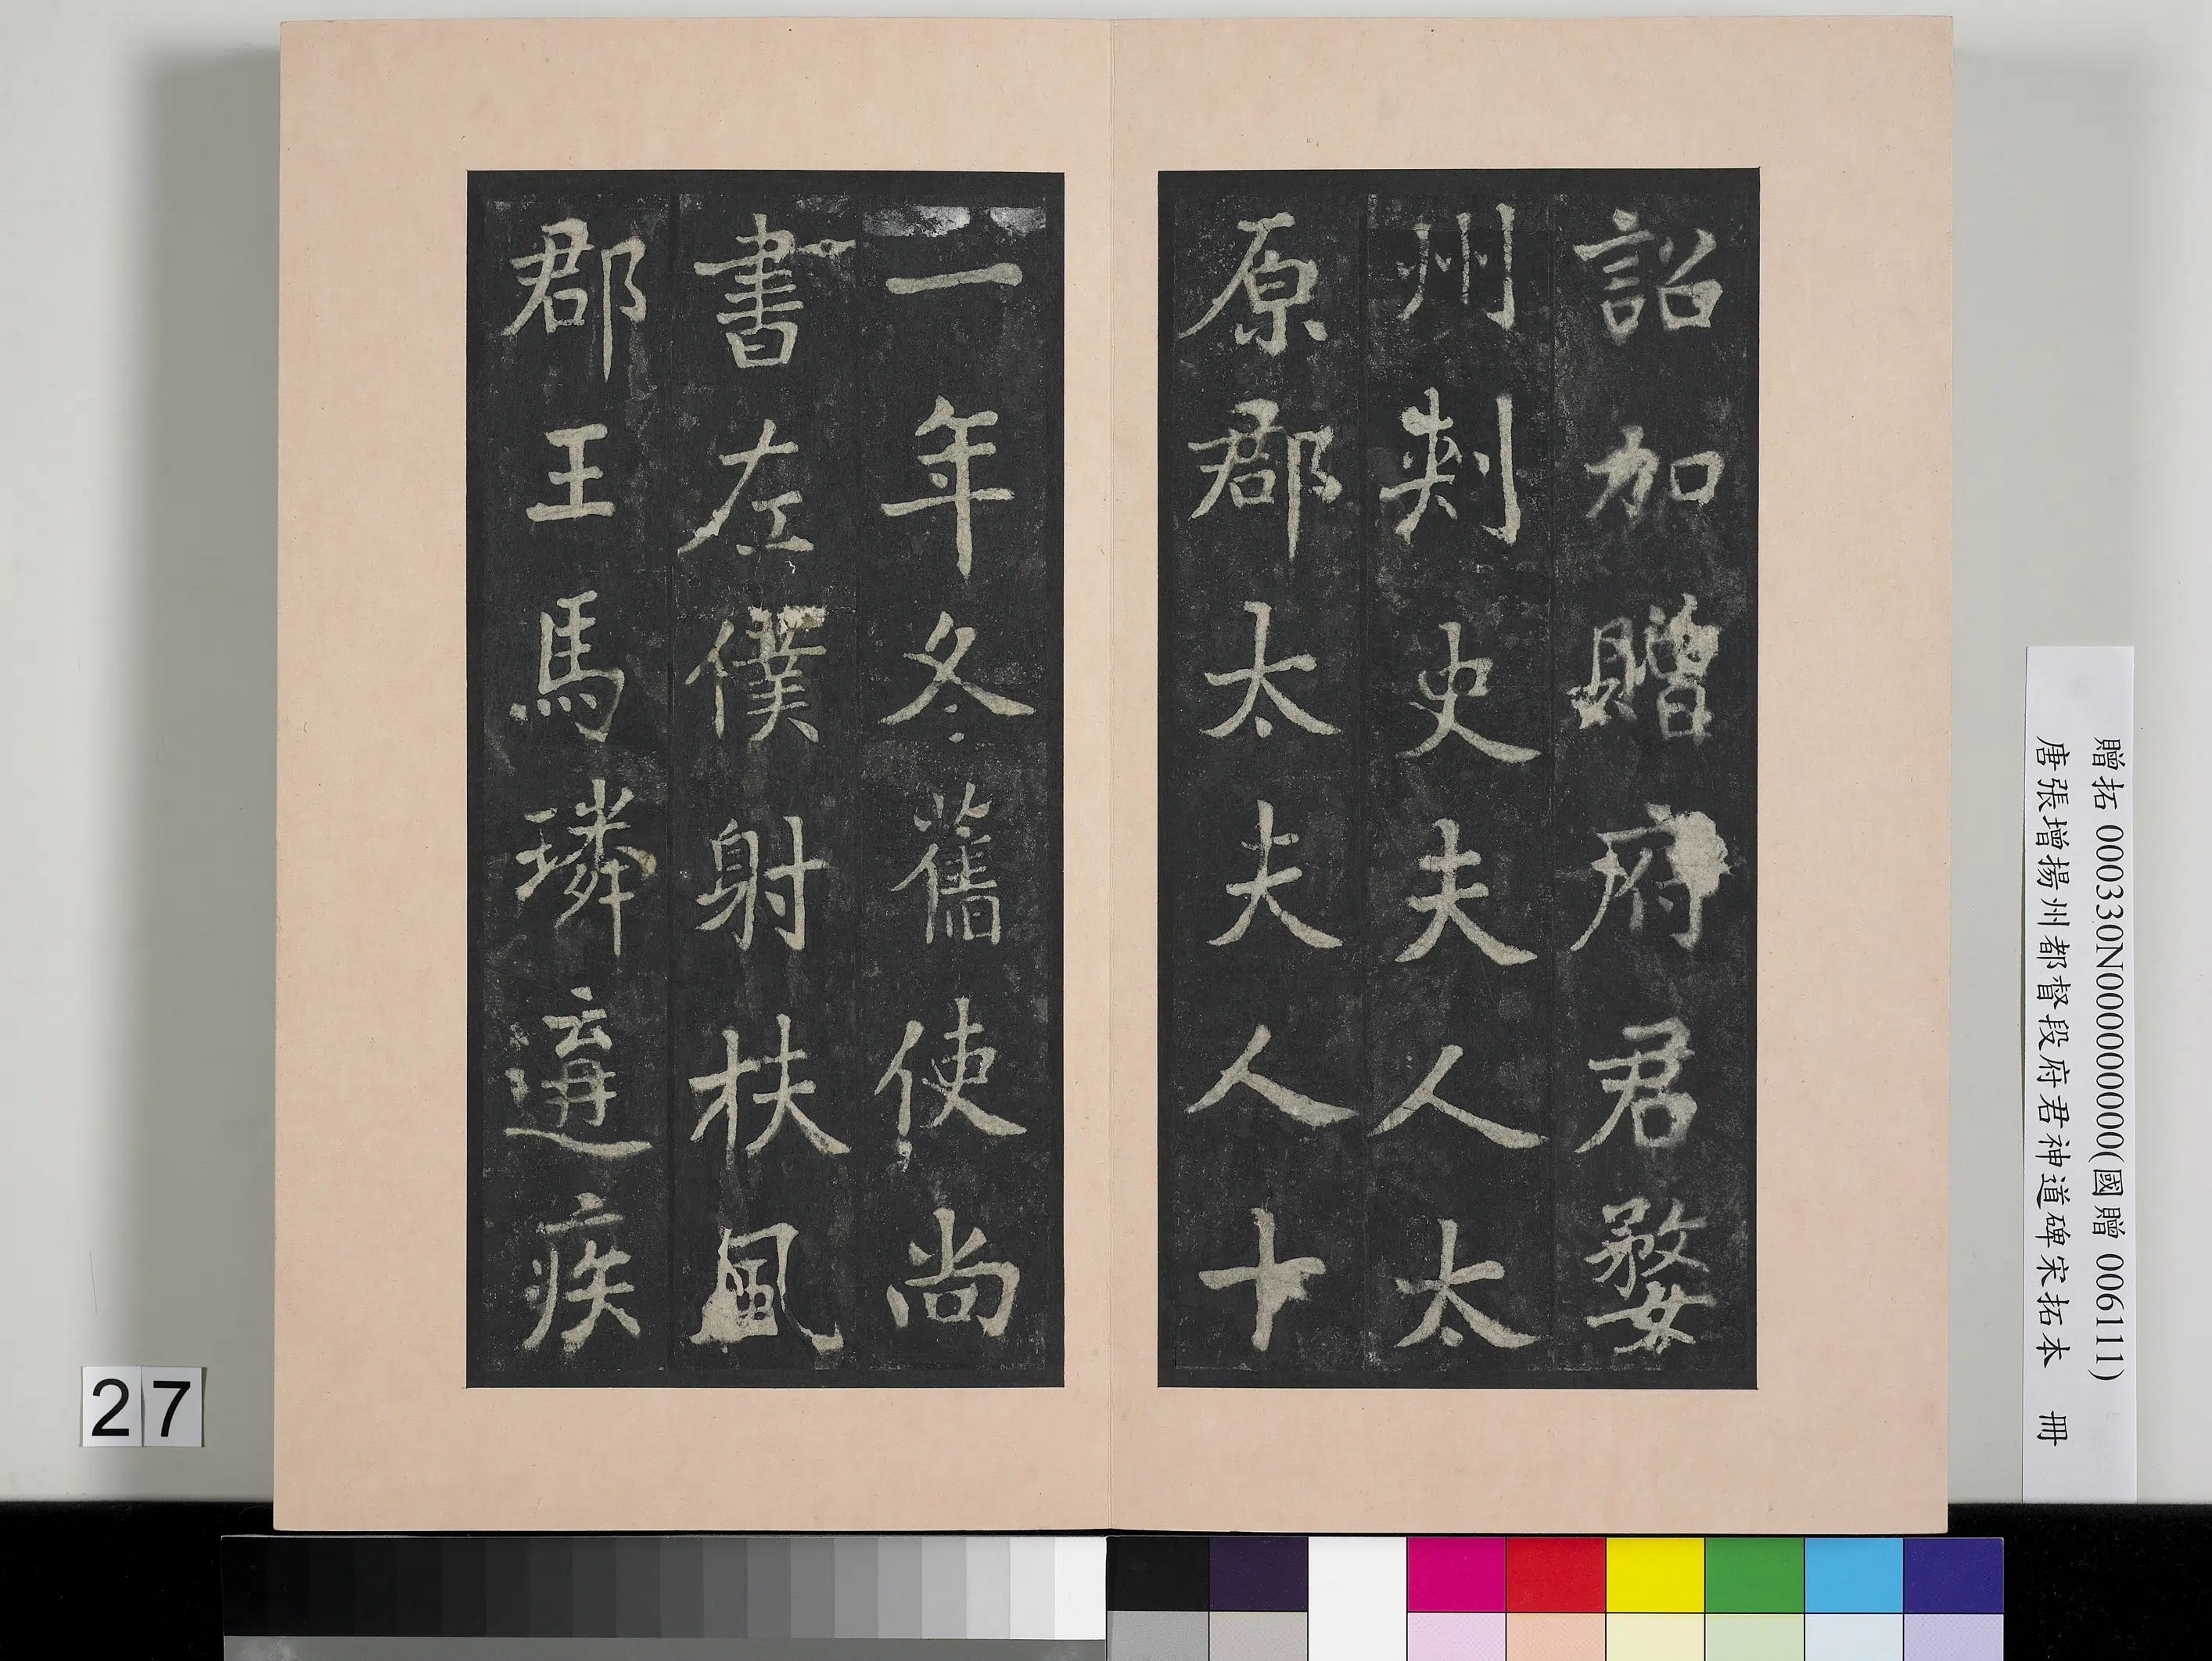 詔加贈府君婺
州刺史夫人太
原郡太夫人十
一年冬舊使尚
書左僕射扶風
郡王馬璘遘疾
贈拓 000330N000000000(國贈 006111)
唐張增揚州都督段府君神道碑宋拓本 冊
27